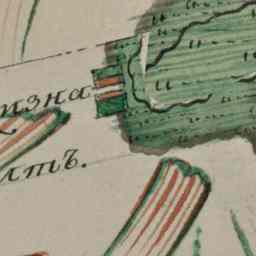 изна
лтъ.